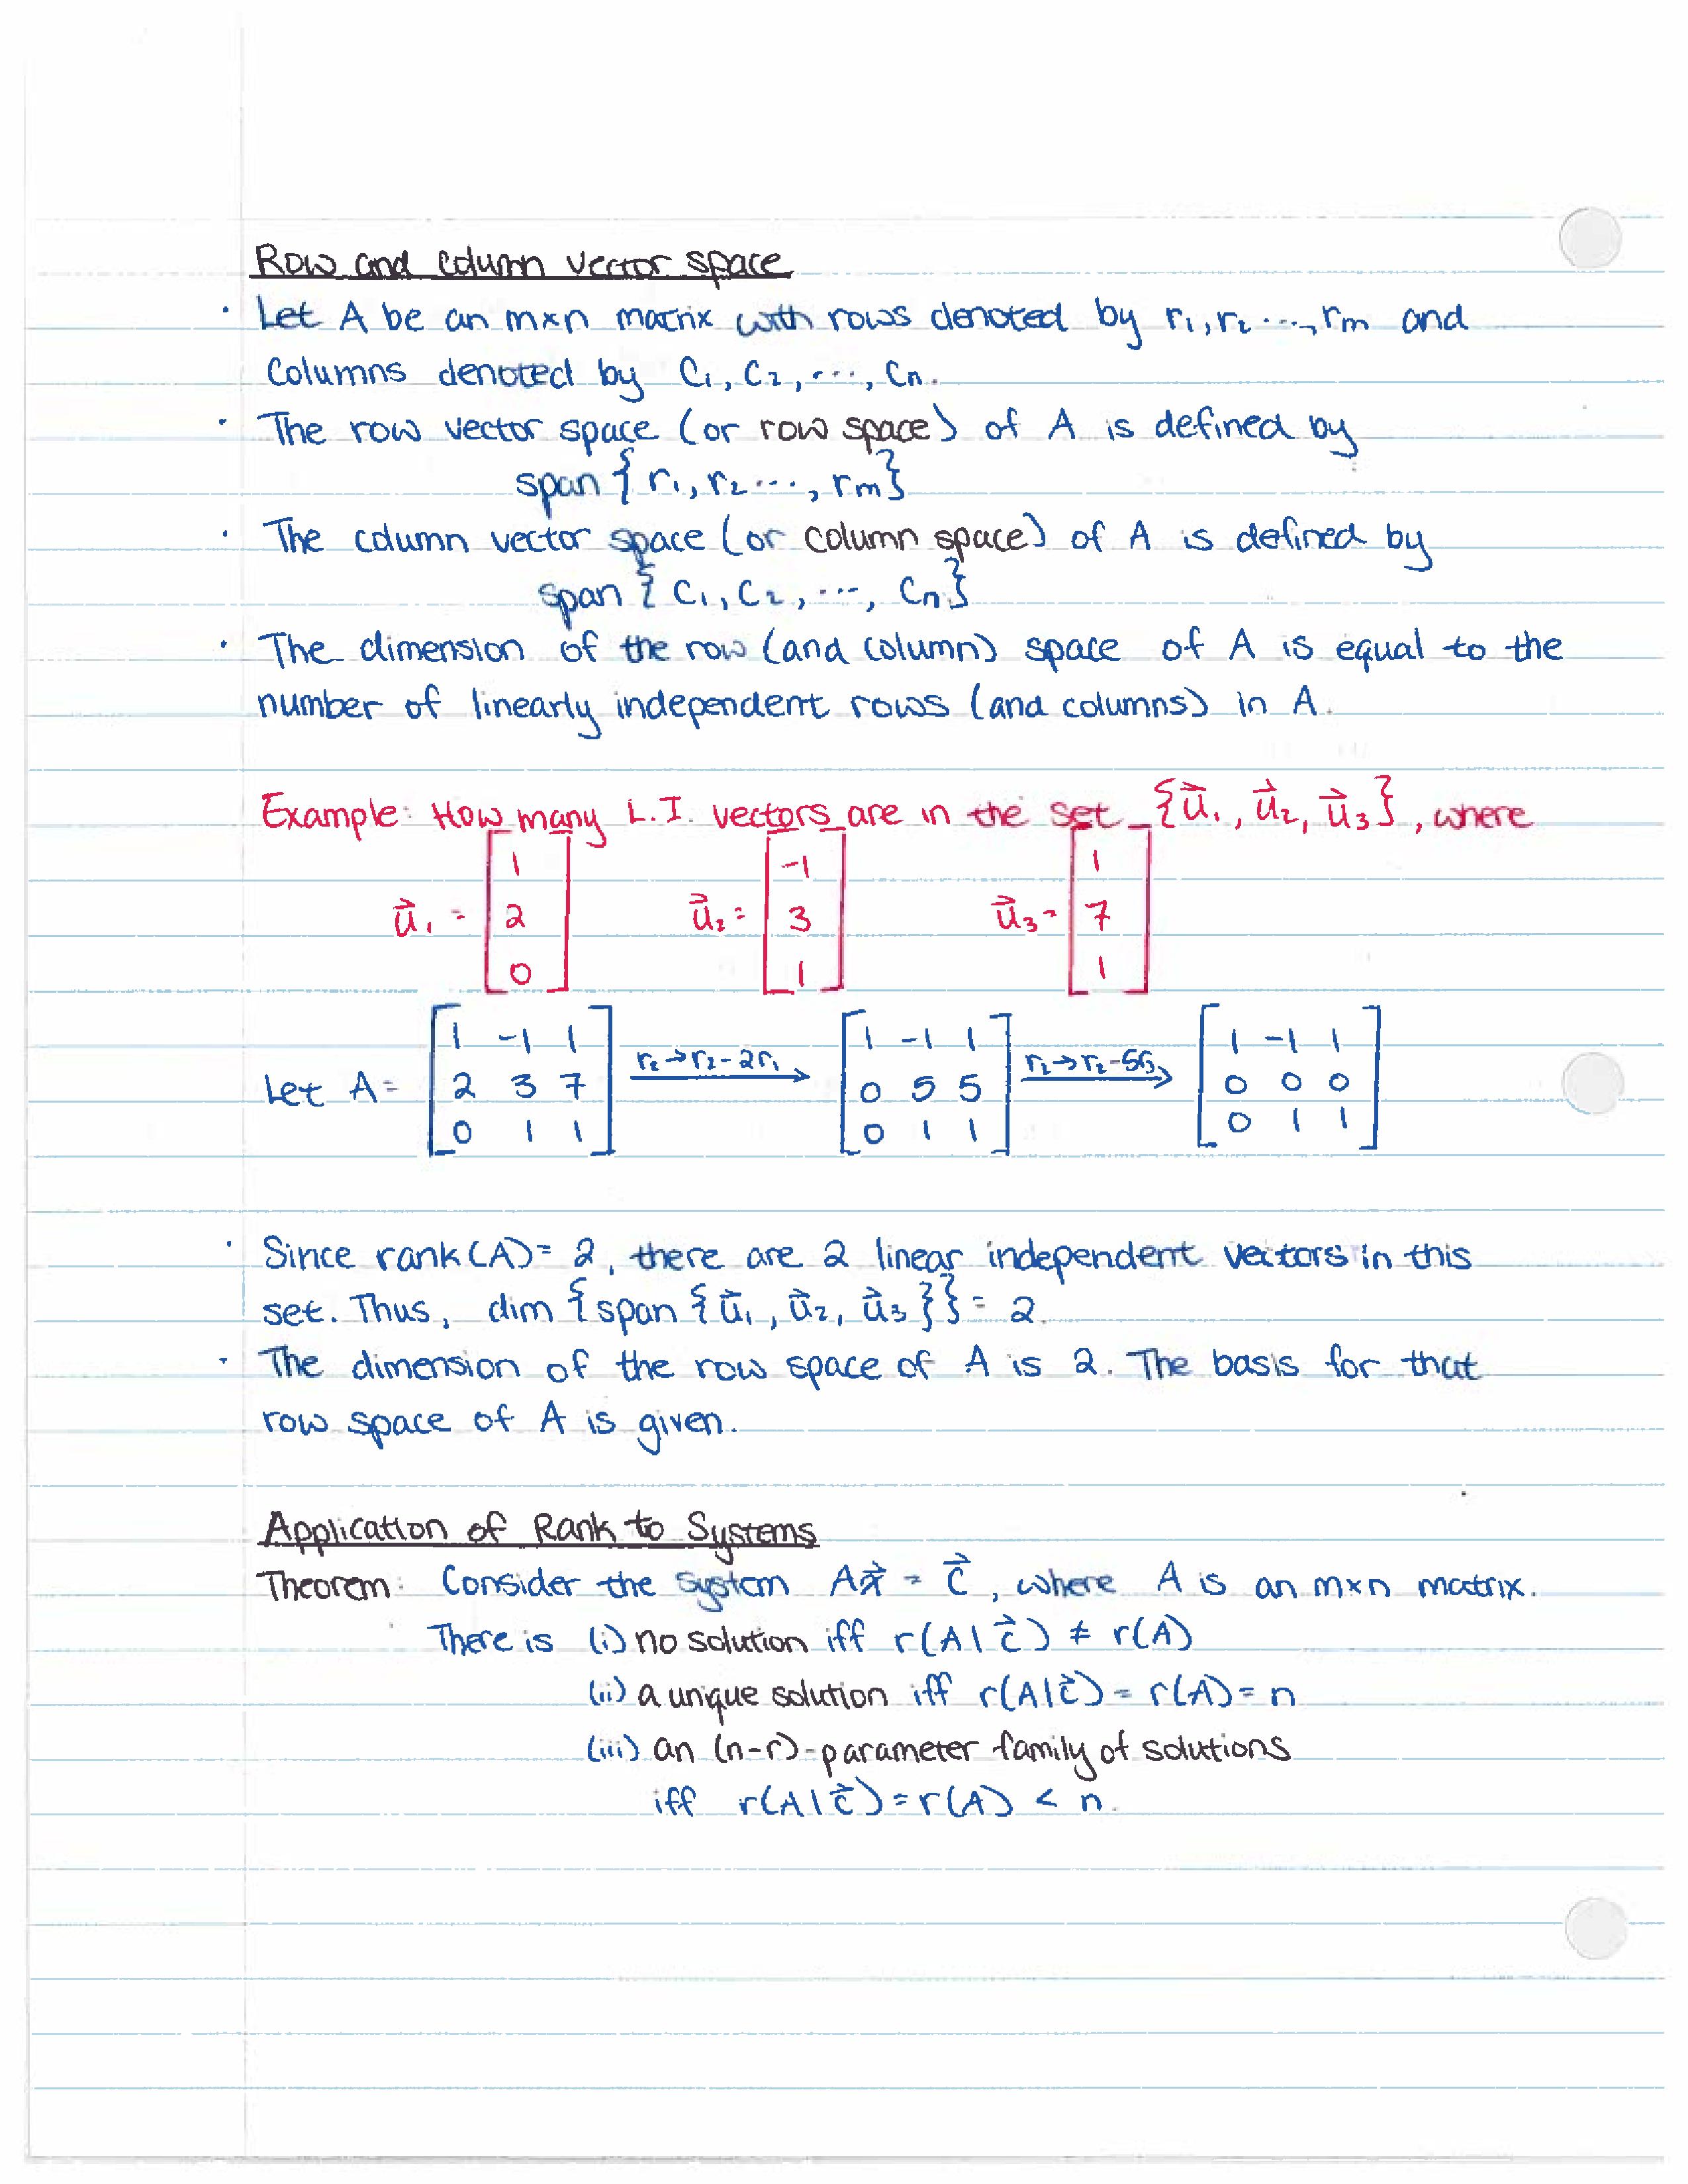 Row and column vector space
· Let A be an m×n matrix with rows denoted by r₁, r₂ ..., rₘ and
columns denoted by C₁, C₂, ..., Cₙ.
· The row vector space (or row space) of A is defined by
span {r₁, r₂ ..., rₘ}
· The column vector space (or column space) of A is defined by
span {C₁, C₂, ..., Cₙ}
· The dimension of the row (and column) space of A is equal to the
number of linearly independent rows (and columns) in A.
Example: How many L.I. vectors are in the set {u⃗₁, u⃗₂, u⃗₃}, where
u⃗₁ = [1 2 0] u⃗₂ = [-1 3 1] u⃗₃ = [1 7 1]
Let A = [1 -1 1; 2 3 7; 0 1 1] r₂→r₂-2r₁ [1 -1 1; 0 5 5; 0 1 1] r₂→r₂-5r₃ [1 -1 1; 0 0 0; 0 1 1]
· Since rank(A) = 2, there are 2 linear independent vectors in this
set. Thus, dim {span {u⃗₁, u⃗₂, u⃗₃}} = 2.
· The dimension of the row space of A is 2. The basis for that
row space of A is given.
Application of Rank to Systems
Theorem: Consider the system Ax⃗ = C⃗, where A is an m×n matrix.
There is (i) no solution iff r(A|C⃗) ≠ r(A)
(ii) a unique solution iff r(A|C⃗) = r(A) = n
(iii) an (n-r)-parameter family of solutions
iff r(A|C⃗) = r(A) < n.